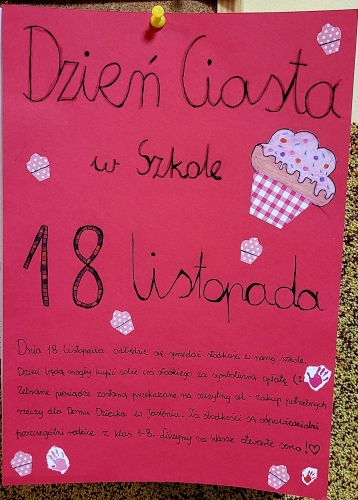 Dzień Ciasta
w Szkole
18 Listopada
Dnia 18 Listopada odbędzie się sprzedaż słodkości w naszej szkole.
Dzieci będą mogły kupić sobie coś słodkiego za symboliczną opłatą (:
Zebrane pieniądze zostaną przekazane na szczytny cel - zakup potrzebnych
rzeczy dla Domu Dziecka w Jaśleniu. Za słodkości są odpowiedzialni
poszczególni rodzice z klas 1-8. Liczymy na Wasze otwarte serca!♡